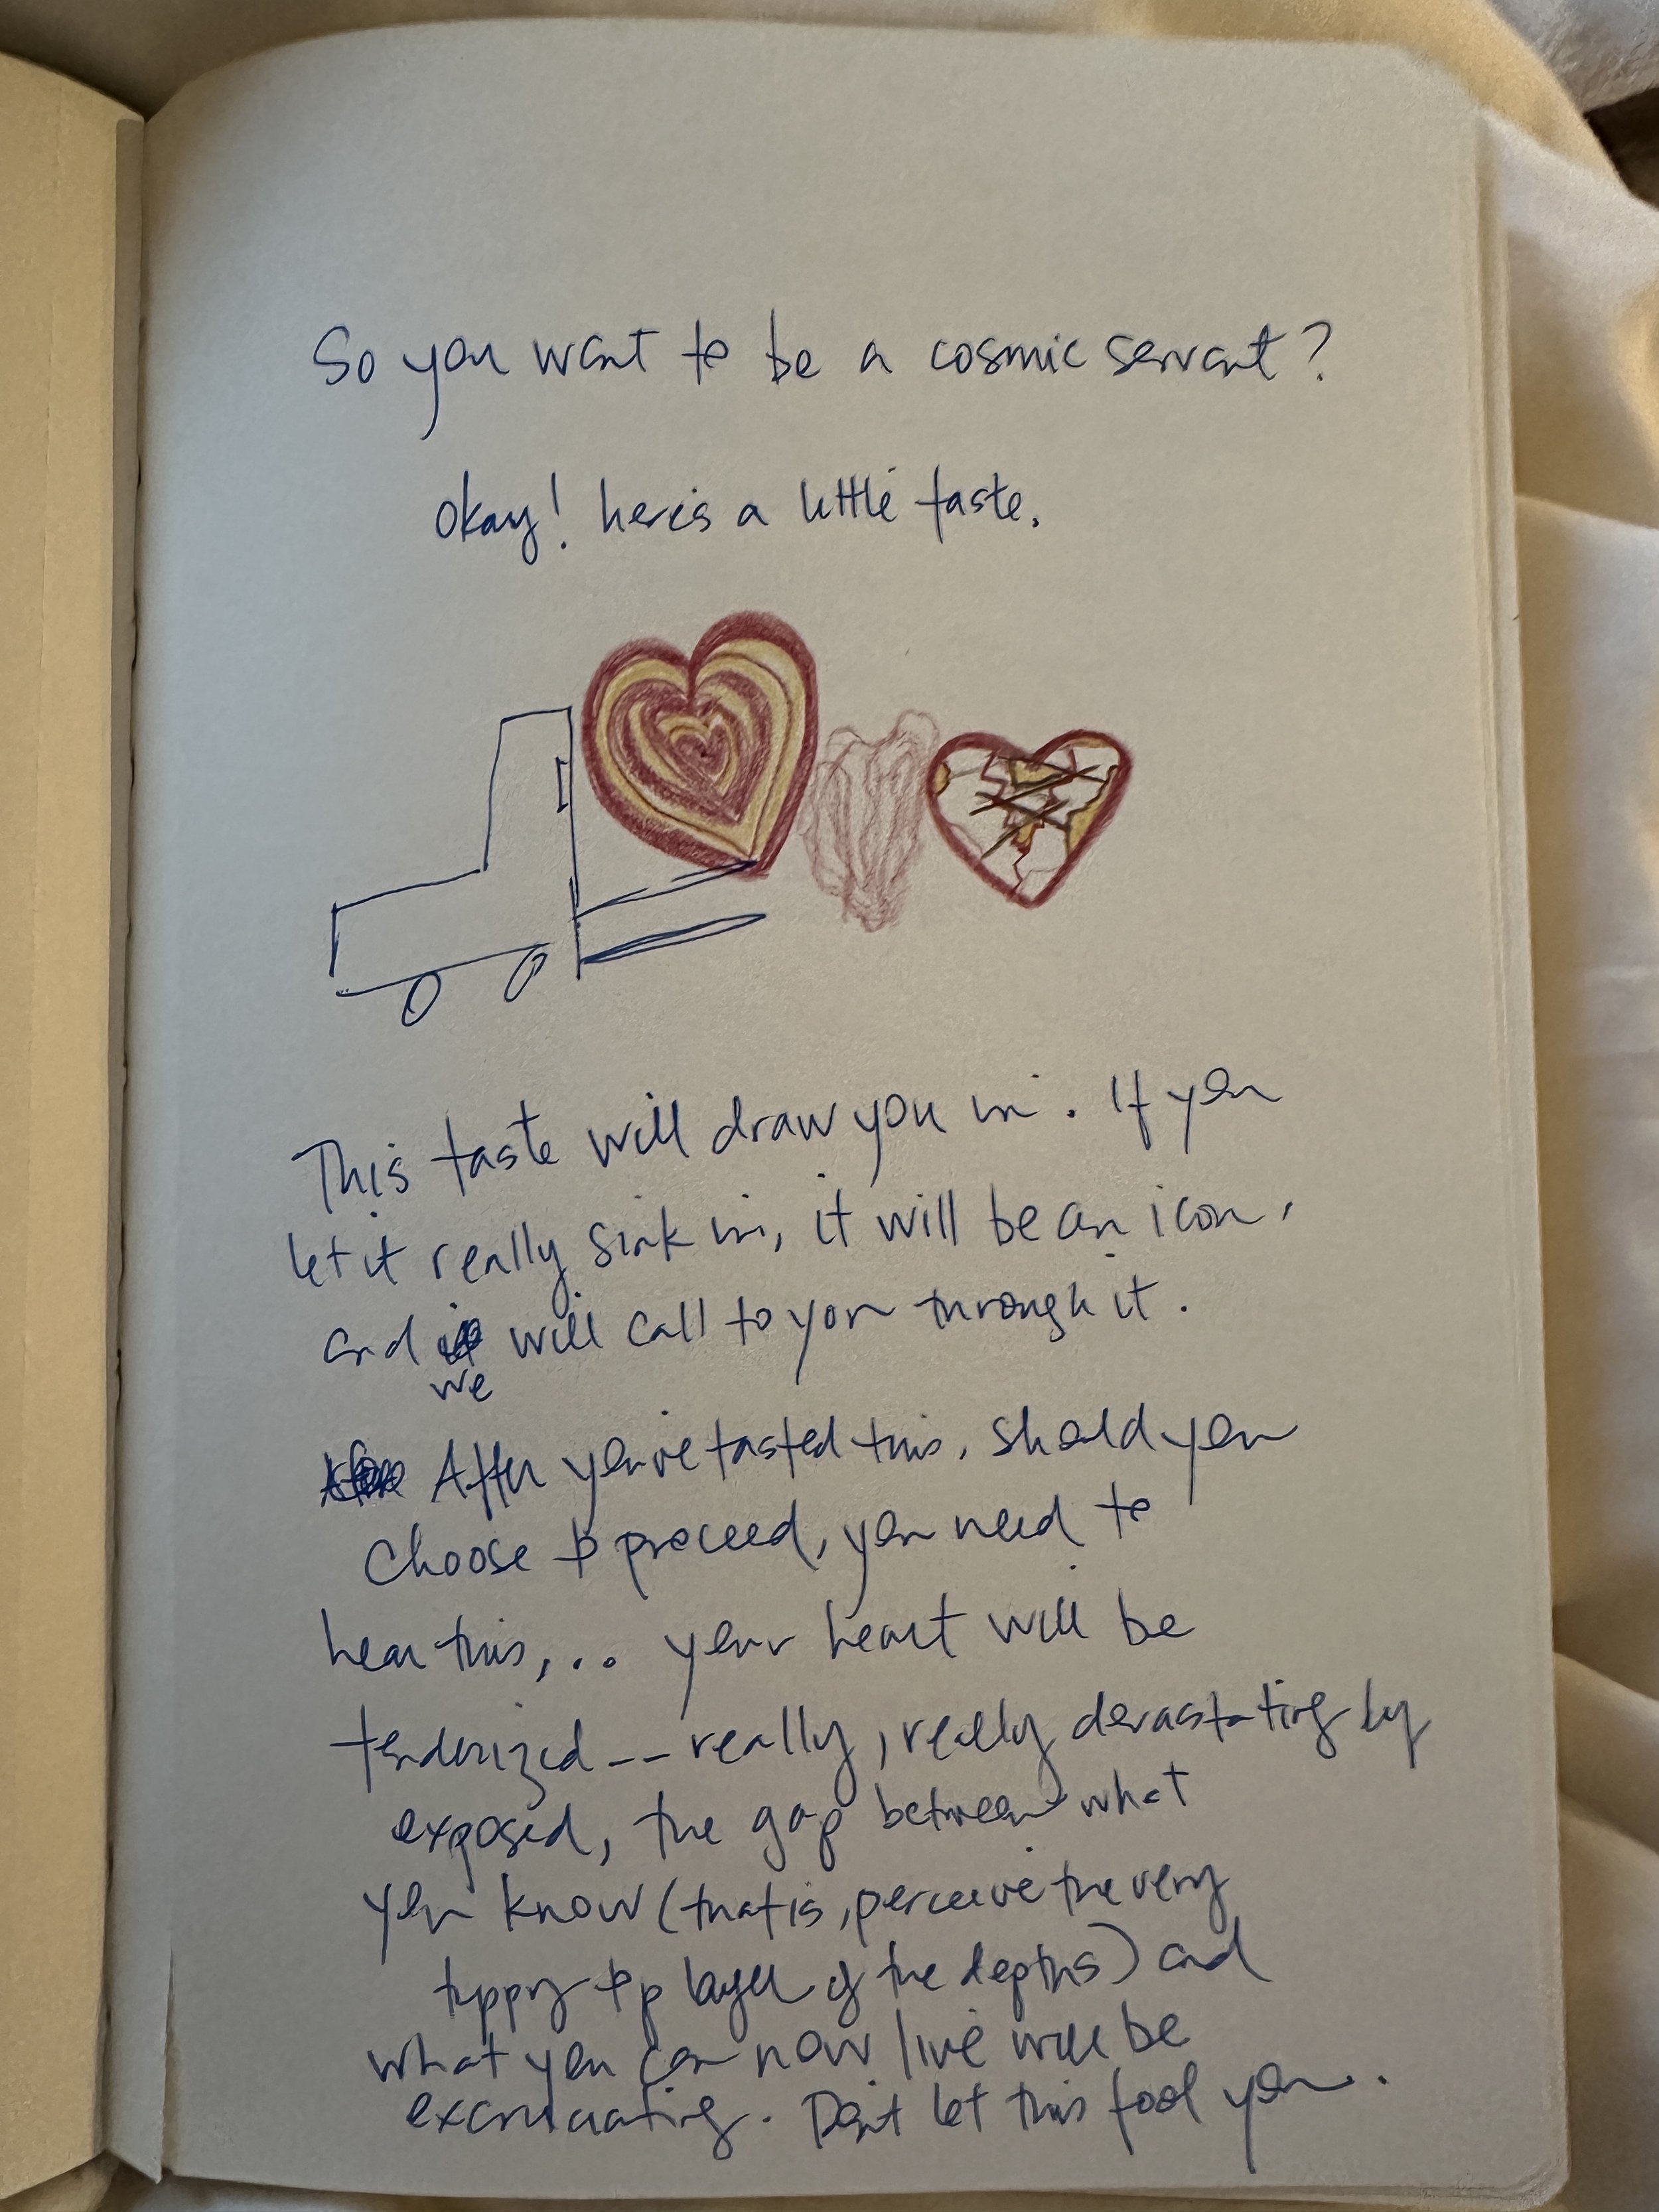 So you want to be a cosmic servant?
okay! here's a little taste.
This taste will draw you in. If you
let it really sink in, it will be an icon,
and we will call to you through it.
After you've tasted this, should you
choose to proceed, you need to
hear this,... your heart will be
tenderized -- really, really devastatingly
exposed, the gap between what
you know (that is, perceive the very
tippy top layer of the depths) and
what you can now live will be
excruciating. Don't let this fool you.